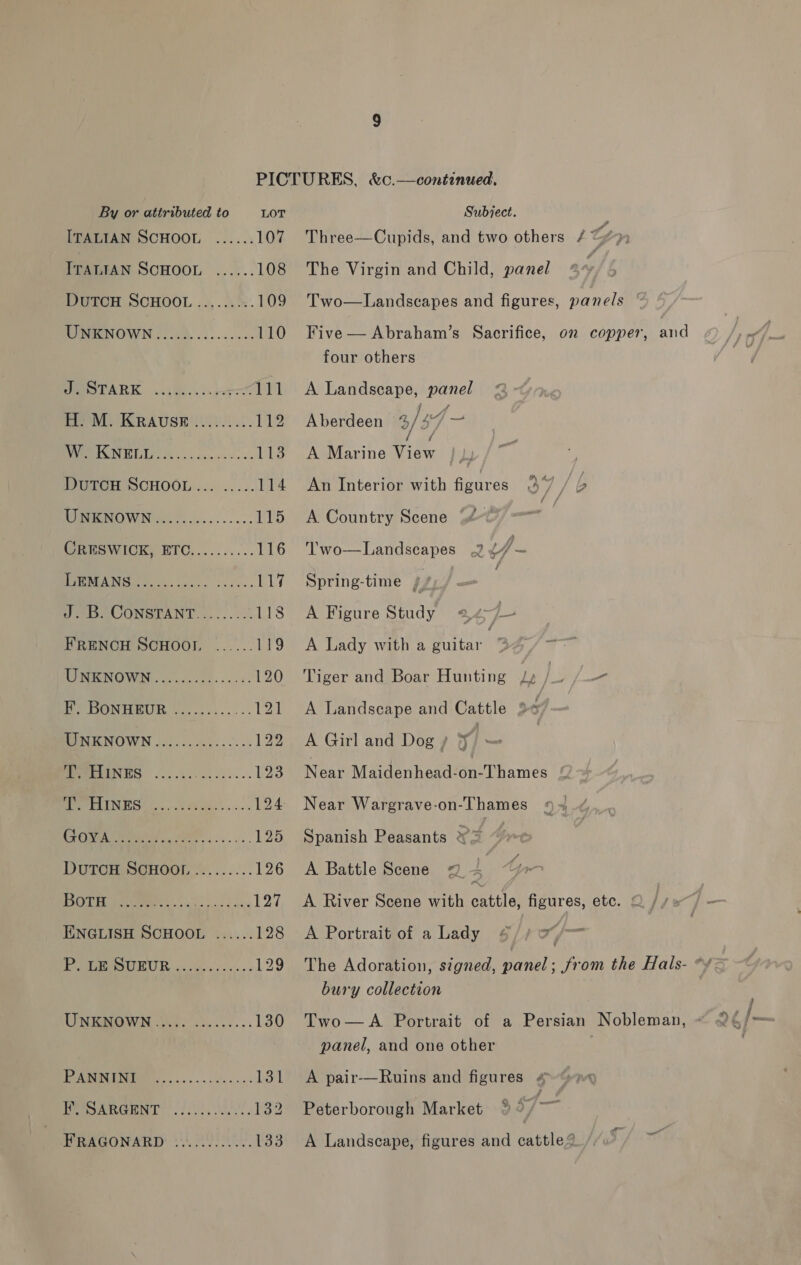 9
PICTURES, &c.—continued.
By or attributed to LOT Subject.
ITALIAN SCHOOL ......107 Three—Cupids, and two others
ITALIAN SCHOOL ......108 The Virgin and Child, panel
DUTCH SCHOOL.........109 Two—Landscapes and figures, panels
UNKNOWN...............110 Five — Abraham's Sacrifice, on copper, and
four others
J. STARK ...............111 A Landscape, panel
H. M. KRAUSE.........112 Aberdeen
W. KNELL...............113 A Marine View
DUTCH SCHOOL... .....114 An Interior with figures
UNKNOWN...............115 A Country Scene
CRESWICK, ETC..........116 Two—Landscapes
LEMANS ..................117 Spring-time
J. B. CONSTANT.........118 A Figure Study
FRENCH SCHOOL ......119 A Lady with a guitar
UNKNOWN...............120 Tiger and Boar Hunting
F. BONHEUR ............121 A Landscape and Cattle
UNKNOWN...............122 A Girl and Dog
T. HINES ...............123 Near Maidenhead-on-Thames
T. HINES ...............124 Near Wargrave-on-Thames
GOYA.....................125 Spanish Peasants
DUTCH SCHOOL.........126 A Battle Scene
BOTH .....................127 A River Scene with cattle, figures, etc.
ENGLISH SCHOOL ......128 A Portrait of a Lady
P. LE SUEUR............129 The Adoration, signed, panel; from the Hals-
bury collection
UNKNOWN..... .........130 Two — A Portrait of a Persian Nobleman,
panel, and one other
PANNINI ...............131 A pair—Ruins and figures
F. SARGENT ............132 Peterborough Market
FRAGONARD ............133 A Landscape, figures and cattle